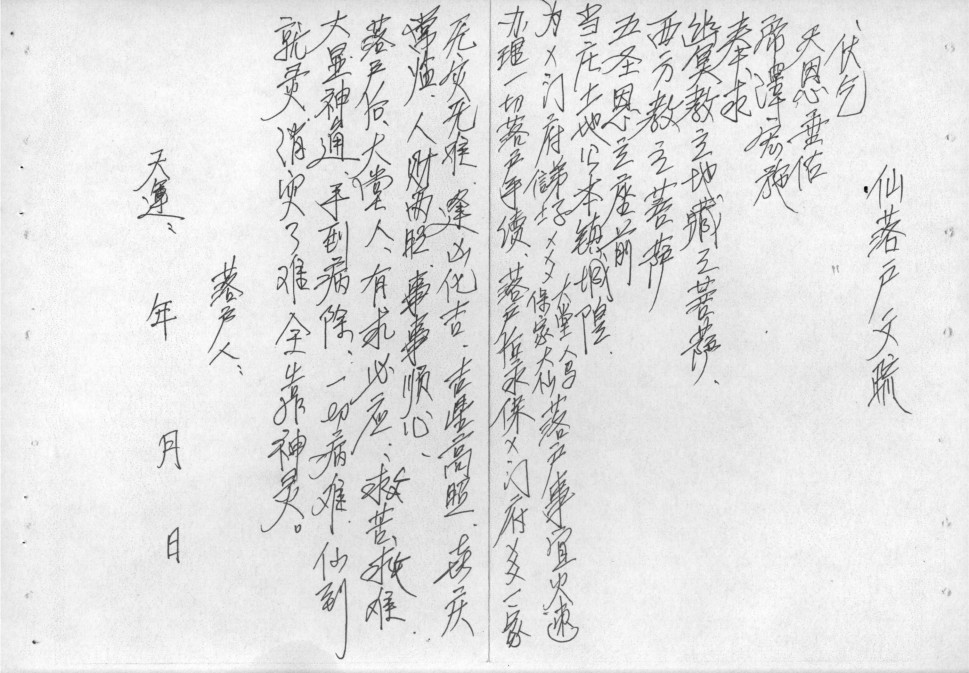 仙落户文疏
伏乞
天恩垂佑
帝泽宏施
奉求
幽冥教主地藏王菩萨、
西方教主菩萨
五圣恩主座前
当庄土地公本镇城隍
大堂人马
为乂门府 乂乂保家大仙落户事宜火速
办理一切落户手续、落户后永保乂门府乂乂一家
无灾无难、逢凶化吉、吉星高照、喜庆
常临、人财两旺、事事顺心、
落户后、大堂人、有求必应、救苦救难
大显神通、手到病除、一切病难、仙到
就灵、消灾了难、全靠神灵。
落户人：
天運： 年 月 日